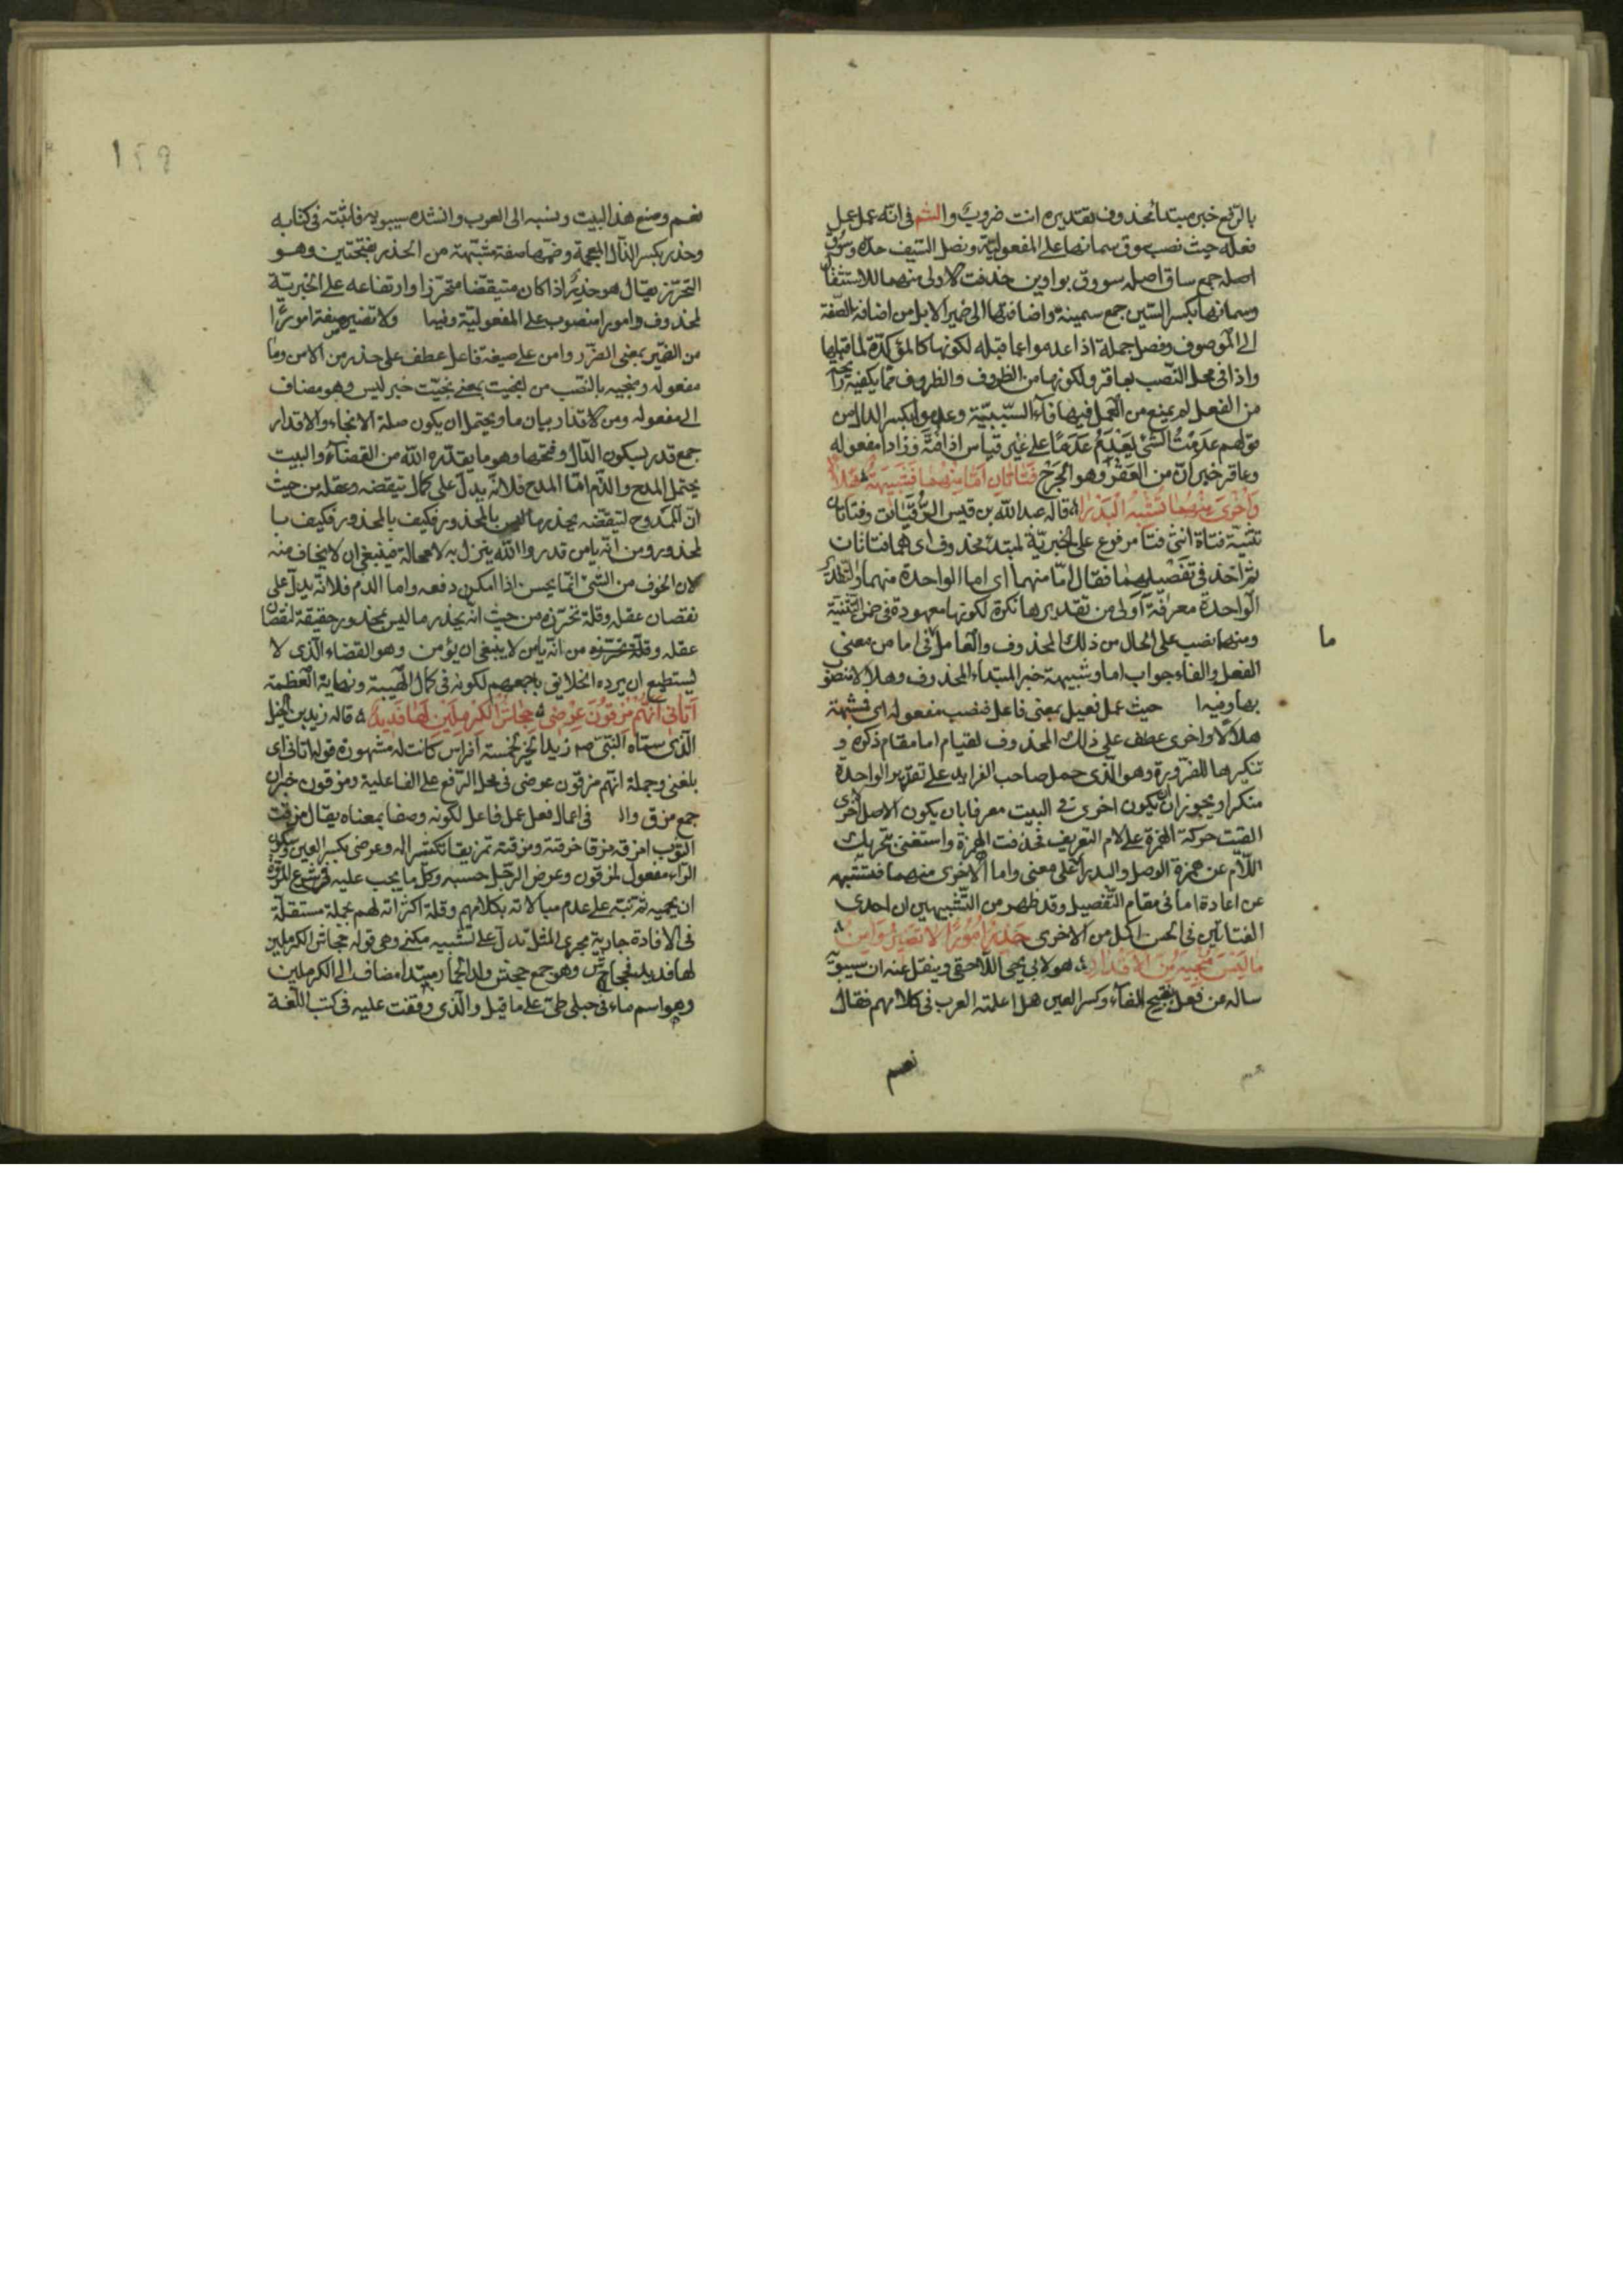 بالرفع خبر مبتدأ محذوف تقديره انت ضروب والشم في انه عمل عمل
فعله حيث نصب سوق سمانها على المفعولية ونصل السيف حده وسوق
اصله جمع ساق اصله سووق بواوين حذفت الاولى منهما للاستثقال
وسمانها بكسر السين جمع سمينة واضافتها الى ضمير الابل من اضافة الصفة
الى الموصوف وفصل جملة اذا عدموا عما قبله لكونها كالمؤكدة لما قبلها
واذا في محل النصب بعاقر ولكونها من الظروف والظروف مما يكفيه رائحة
من الفعل لم يمنع من العمل فيها فاء السببية وعدموا بكسر الدال من
قولهم عدمت الشئ يعدم عدما على غير قياس اذا وزادا مفعوله
وعاقر خبر ان من العقر وهو الجرح فتاتان اما منهما فشبيهة هلالا
واخرى منهما تشبه البدرا قاله عبد الله بن قيس الرقيات وفتاتان
تثنية فتاة انثى فتا مرفوع على الخبرية لمبتدء محذوف اى هما فتاتان
ثم اخذ في تفصيلهما فقال اما منهما اى اما الواحدة منهما والتقدير
الواحدة معرفة اولى من تقديرها نكرة لكونها معهودة في ضمن التثنية
ومنهما نصب على الحال من ذلك المحذوف والعامل في اما من معنى
ما
الفعل والفاء جواب اما وشبيهة خبر المبتداء المحذوف وهلالا منصوب
بها وفيه ا حيث عمل فعيل بمعنى فاعل فنصب مفعوله اى فشبهة
هلالا واخرى عطف على ذلك المحذوف لقيام اما مقام ذكره و
تنكيرها للضرورة وهو الذى حمل صاحب الفرايد على تقدير الواحدة
منكرا ويجوز ان يكون اخرى في البيت معرفا بان يكون الاصل الاخرى
القيت حركة الهمزة على لام التعريف فحذفت الهمزة واستغنى بتحريك
اللام عن همزة الوصل والبدرا على معنى واما الاخرى منهما فتشبه
عن اعادة اما في مقام التفصيل وقد ظهر من التشبيهين ان احدى
الفتاتين في الحسن اكمل من الاخرى حذر امورا لا تضير وآمن
ما ليس منجيه من الاقدار هو لابي يحيى اللاحقى وينقل عنه ان سيبويه
ساله عن فعل بفتح الفاء وكسر العين هل اعلمته العرب في كلامهم فقال
نعم
١٤٩
نعم وصنع هذا البيت ونسبه الى العرب وانشده سيبويه فاثبته في كتابه
وحذر بكسر الذال المعجمة وضمها صفة مشبهة من الحذر بفتحتين وهو
التحرز يقال هو حذر اذا كان متيقضا متحرزا وارتفاعه على الخبرية
لمحذوف وامورا منصوب على المفعولية وفيها ولا تضير صفة امورا
من الضير بمعنى الضرر وامن على صيغة فاعل عطف على حذر من الامن وما
مفعوله ومنجيه بالنصب من انجيت بمعنى نجيت خبر ليس وهو مضاف
الى مفعوله ومن الاقدار بيان ما ويحتمل ان يكون صلة الانجاء والاقدار
جمع قدر بسكون الدال وفتحها وهو ما يقدره الله من القضاء والبيت
يحتمل المدح والذم اما المدح فلانه يدل على كمال تيقضه وعقله من حيث
ان الممدوح لتيقضه يحذر بالمحذور فكيف بالمحذور فكيف با
لمحذور ومن انه يامن قدر والله ينزل به لا محالة فينبغي ان لا يخاف منه
لان الخوف من الشئ انما يحسن اذا امكن دفعه واما الذم فلانه يدل على
نقصان عقله وقلة تحرزه من حيث انه يحذر ما ليس بمحذور حقيقة لنقصان
عقله وقلة تحرزه من انه يامن لا ينبغي ان يؤمن وهو القضاء الذى لا
يستطيع ان يرده الخلايق باجمعهم لكونه في كمال الهيبة ونهاية العظمة
أتاني انهم مزقون عرضي جحاش الكرملين لها فديد قاله زيد بن الخيل
الذى سماه النبي ص زيد الخير لخمسة افراس كانت له مشهورة قوله اتاني اى
بلغني وجملة انهم مزقون عرضي في محل الرفع على الفاعلية ومزقون خبر ان
جمع مزق وال في اعمال فعل عمل فاعل لكونه وصفا بمعناه يقال مزقت
الثوب امزقه مزقا خرقته ومزقته تمزيقا تكثيرا له وعرضي بكسر العين وسكون
الراء مفعول لمزقون وعرض الرجل حسبه وكل ما يجب عليه في شرع المروة
ان يحميه ثم نبه على عدم مبالاته بكلامهم وقلة اكتراثه لهم بجملة مستقلة
في الافادة جارية مجرى المثل تدل على تشبيه مكنى وهي قوله جحاش الكرملين
لها فديد فجحاش وهو جمع جحش ولد الحمار مبتدأ مضاف الى الكرملين
وهو اسم ماء في جبلى طى على ما قيل والذى وقفت عليه في كتب اللغة